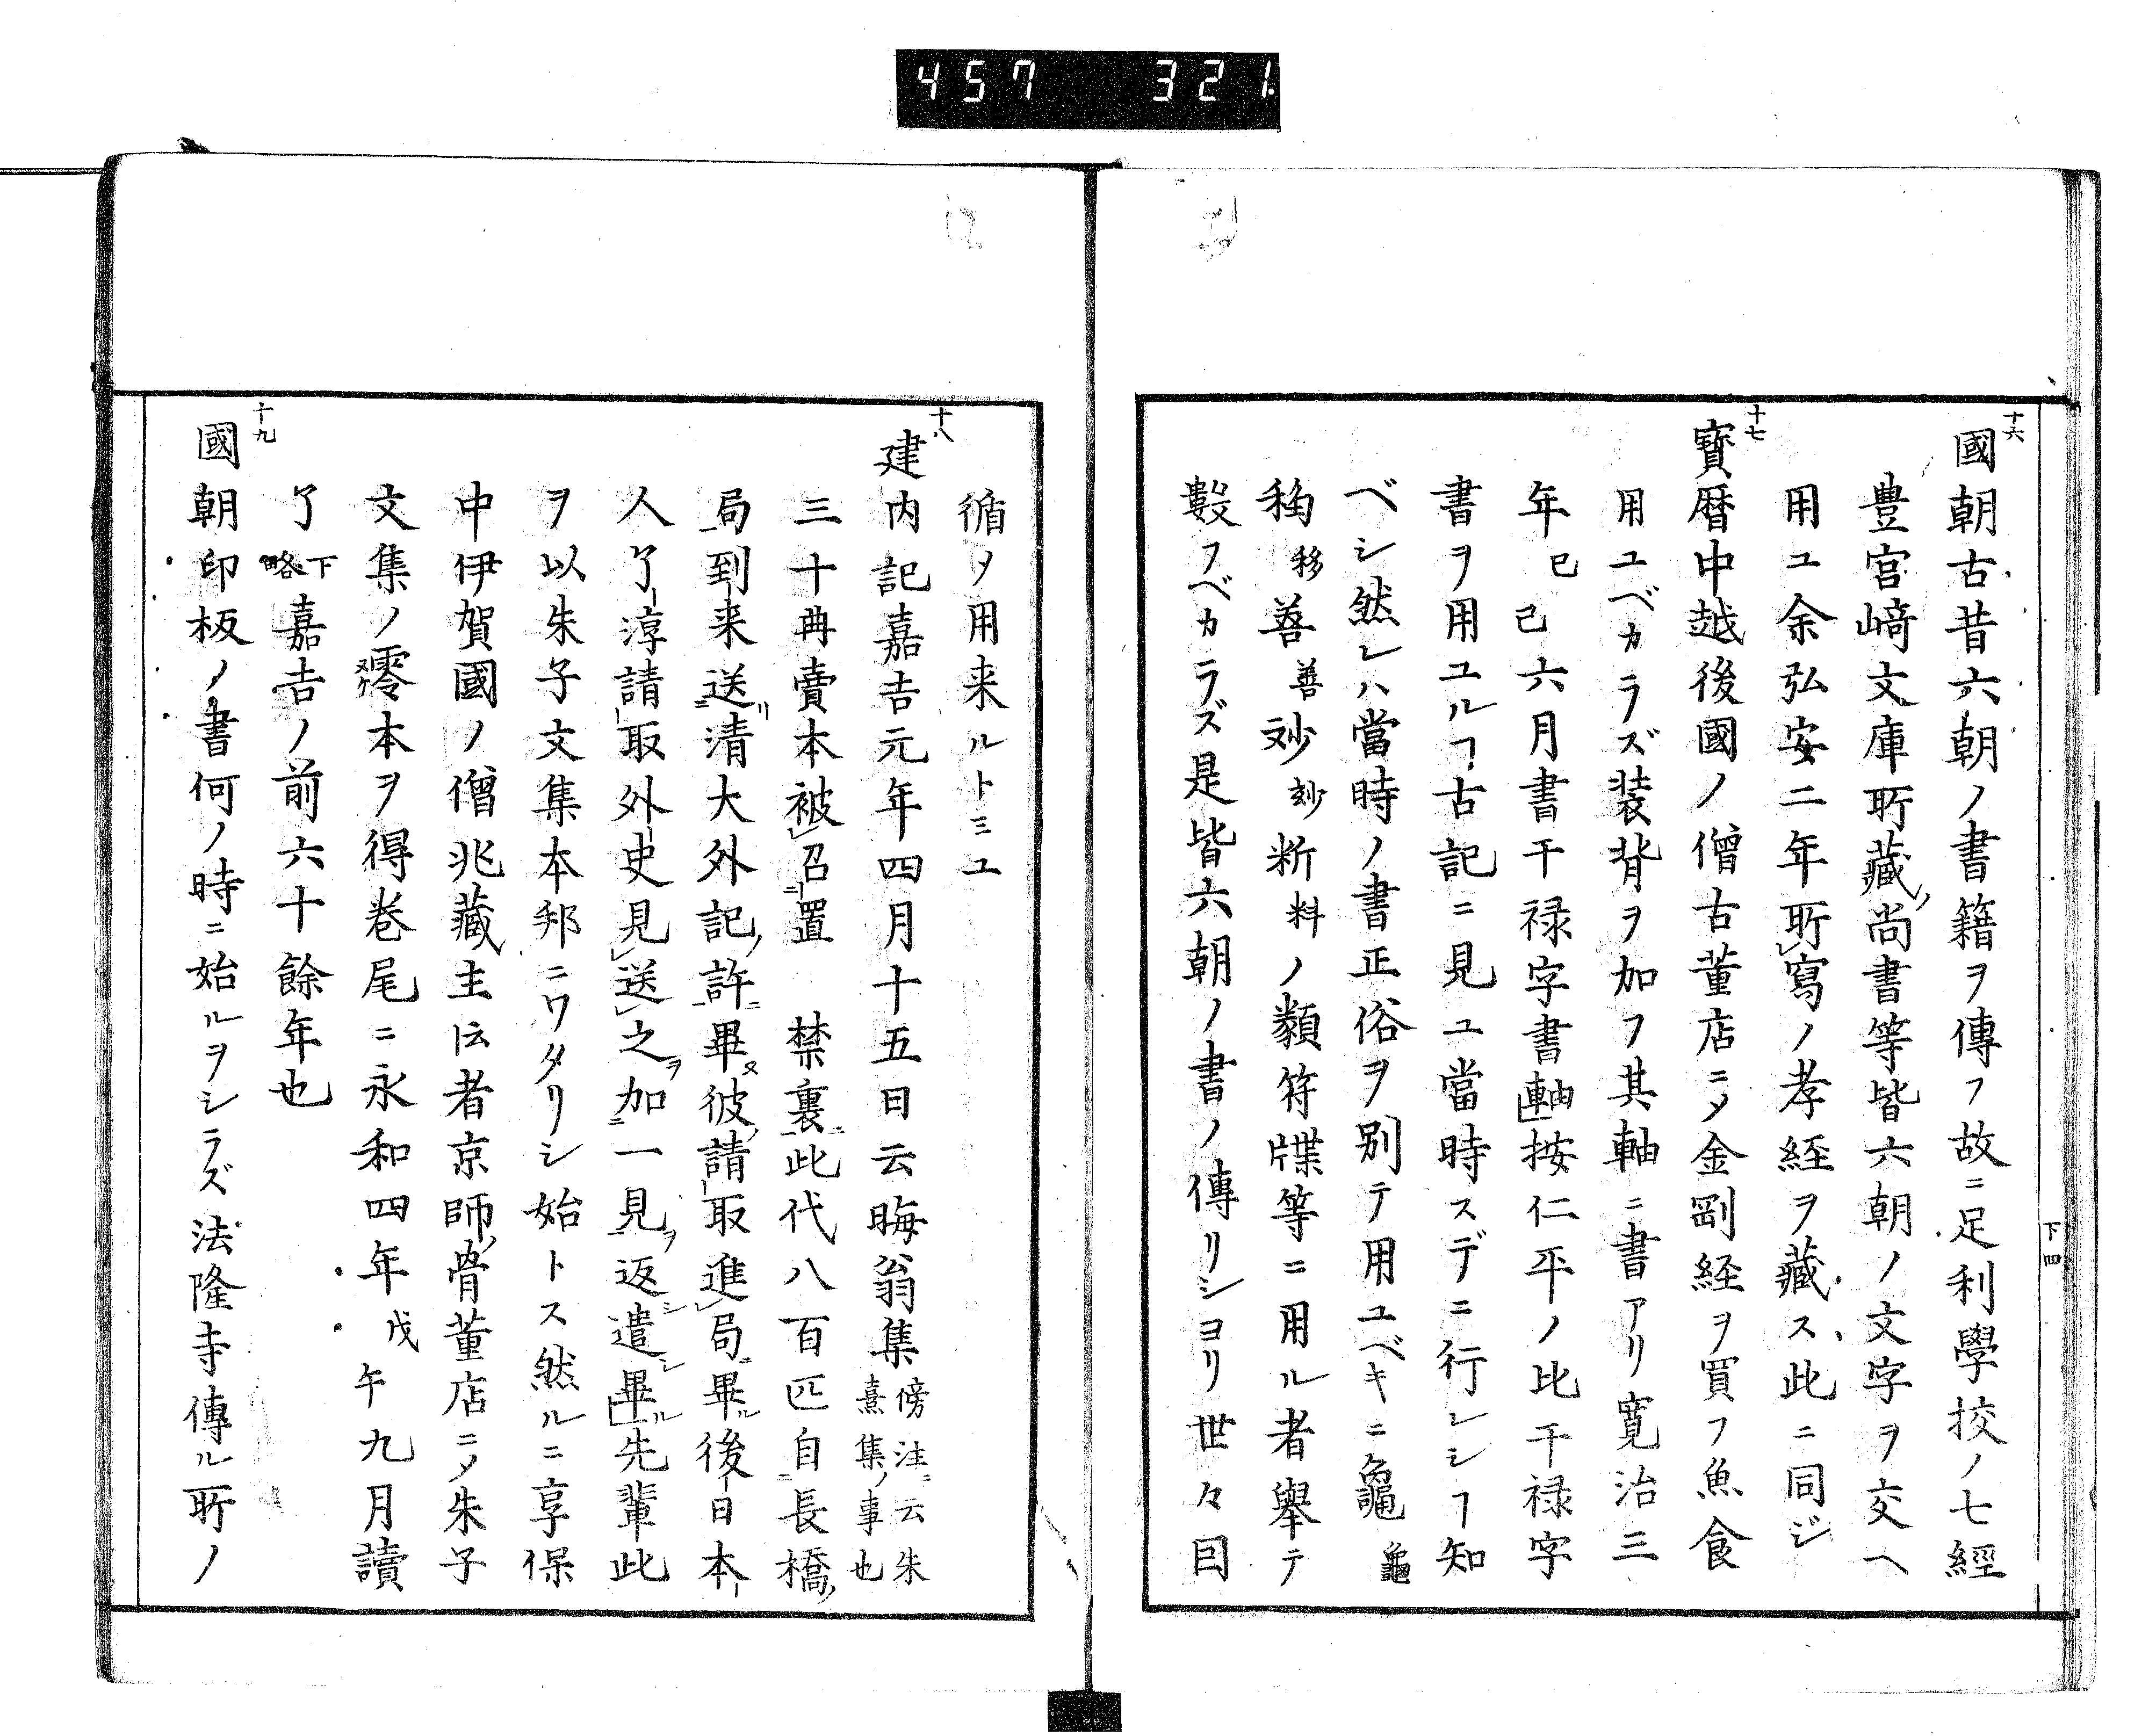 457 321.
十六
國朝古昔六朝ノ書籍ヲ傳フ故ニ足利學挍ノ七經
豊宮﨑文庫所藏ノ尚書等皆六朝ノ文字ヲ交ヘ
用ユ余弘安二年所寫ノ孝経ヲ藏ス此ニ同ジ
十七
寳暦中越後國ノ僧古董店ニメ金剛経ヲ買フ魚食
用ユベカラズ装背ヲ加フ其軸ニ書アリ寛治三
年己巳六月書干禄字書軸按仁平ノ比干禄字
書ヲ用ユルヿ古記ニ見ユ當時スデニ行レシヿ知
ベシ然レハ當時ノ書正俗ヲ別テ用ユベキニ龜龜
移善善妙料ノ類符牒等ニ用ル者舉テ
數フベカラズ是皆六朝ノ書ノ傳リショリ世々因
下四
循メ用来ルトミユ
十八
建内記嘉吉元年四月十五日云晦翁集傍注ニ云朱熹集ノ事也
三十冊賣本被レ召ニ置禁裏ニ此代八百匹自ニ長橋ノ
局一到来送ニ清大外記ノ許ニ畢又彼ノ請取進レ局ニ畢ル後日本
人了淳請取外史見送之ヲ加ニ一見ヲ返シ遣シ畢ル先輩此
ヲ以朱子文集本邦ニワタリシ始トス然ルニ享保
中伊賀國ノ僧兆藏主ト云者京師ノ骨董店ニメ朱子
文集ノ零本ヲ得巻尾ニ永和四年戊午九月讀
了下略嘉吉ノ前六十餘年也
十九
國朝印板ノ書何ノ時ニ始ルヲシラズ法隆寺傳ル所ノ